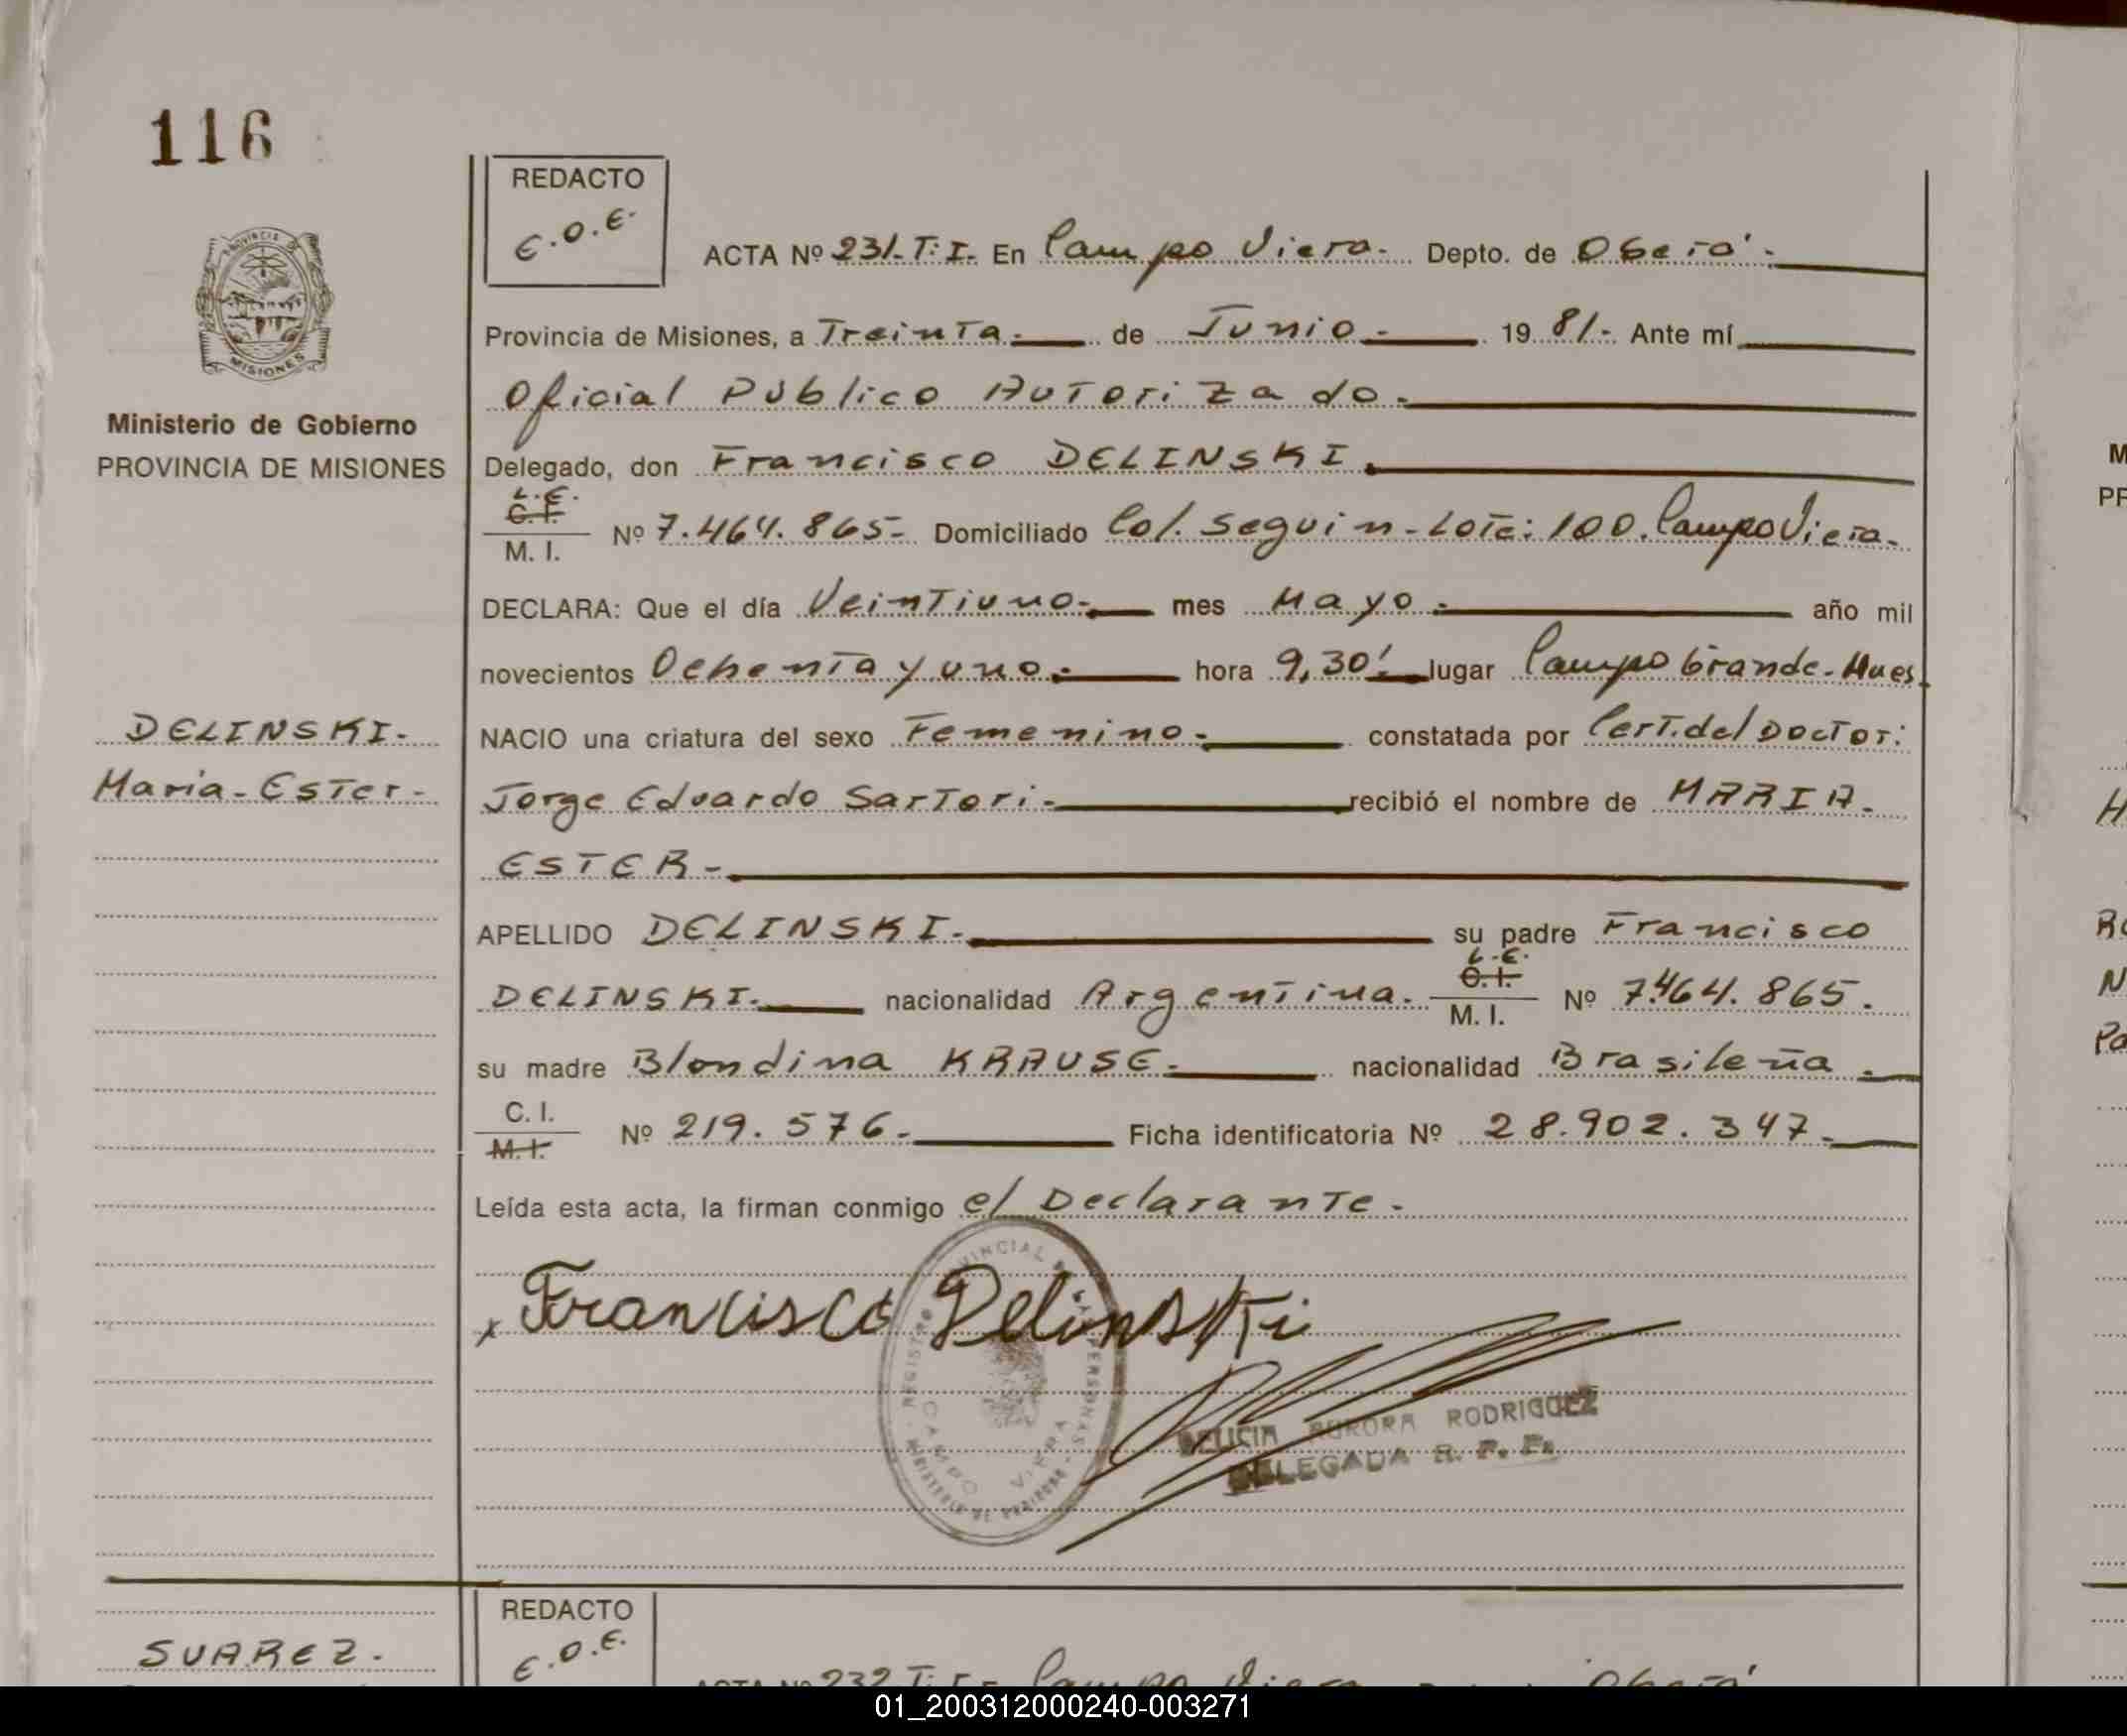 116
PROVINCIA DE
MISIONES
Ministerio de Gobierno
PROVINCIA DE MISIONES
DELINSKI.-
Maria-Ester-
REDACTO
E.O.E.
ACTA Nº 231-T:I. En Campo Viera.- Depto. de Oberá.-
Provincia de Misiones, a Treinta.- de Junio.- 19 81.- Ante mí
Oficial Público Autorizado.-
Delegado, don Francisco DELINSKI.
L.E.
C.I.
M. I.
Nº 7.464.865- Domiciliado Col. Seguin-Lote: 100. Campo Viera.
DECLARA: Que el día Veintiuno- mes Mayo.- año mil
novecientos Ochenta y uno.- hora 9,30! lugar Campo Grande-Mnes.
NACIO una criatura del sexo Femenino.- constatada por Cert.del Doctor:
Jorge Eduardo Sartori.- recibió el nombre de MARIA.
ESTER.-
APELLIDO DELINSKI.- su padre Francisco
L.E.
C.I.
DELINSKI.- nacionalidad Argentina. M. I. Nº 7.464.865.
su madre Blondina KRAUSE.- nacionalidad Brasileña.-
C. I.
M.I.
Nº 219.576.- Ficha identificatoria Nº 28.902.347.-
Leída esta acta, la firman conmigo el Declarante.-
x Francisco Delinski
REGISTRO PROVINCIAL DE LAS PERSONAS
CAMPO VIERA
MINISTERIO DE GOBIERNO
DELICIA AURORA RODRIGUEZ
DELEGADA R. P. P.
SUAREZ.-
REDACTO
E.O.E.
ACTA Nº 232 T:I. En Campo Viera Oberá
01_200312000240-003271